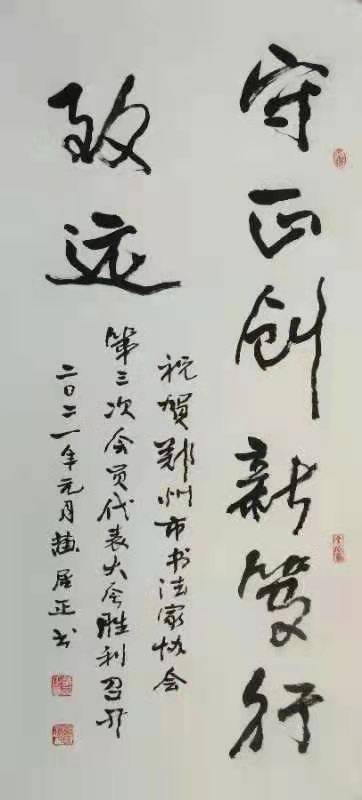 守正创新笃行
致远
祝贺郑州市书法家协会
第三次会员代表大会胜利召开
二〇二一年元月 居正书